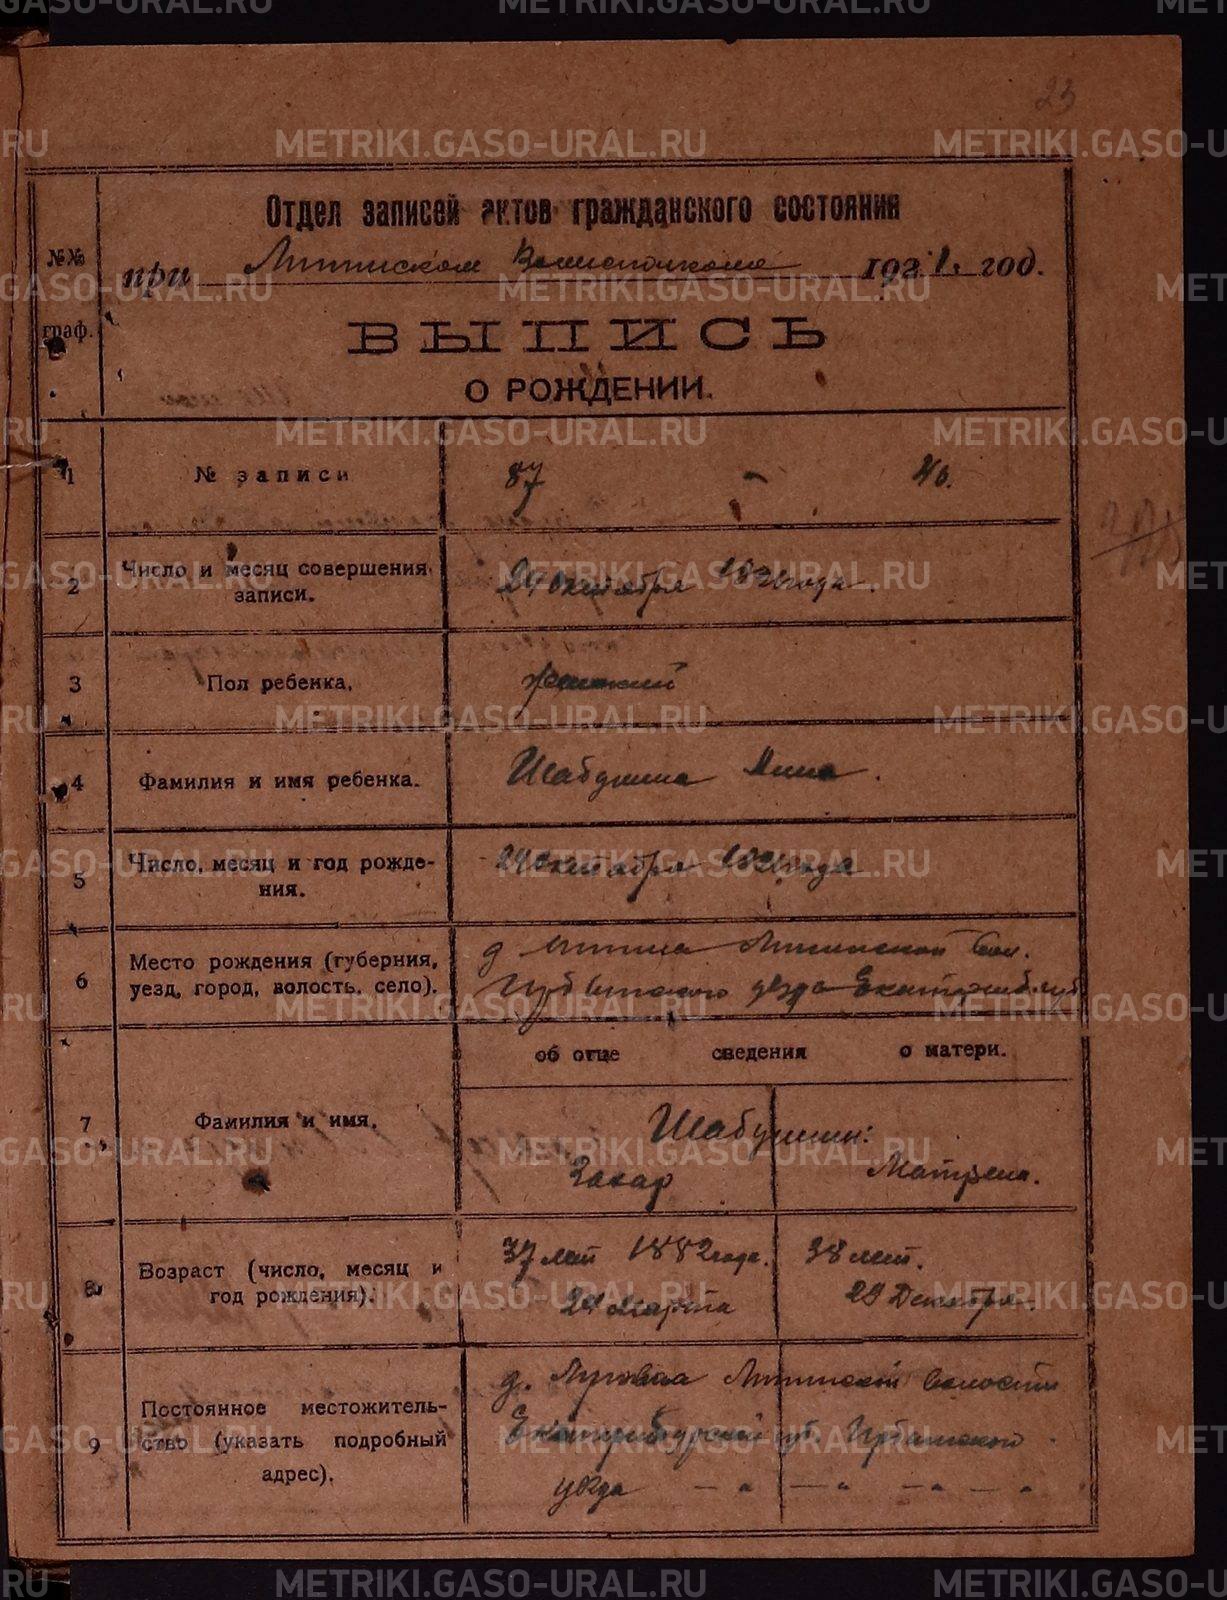 23
Отдел записей актов гражданского состояния
№№ граф.
при Волисполкоме 1921 год.
ВЫПИСЬ
О РОЖДЕНИИ.
1 № записи 87
2 Число и месяц совершения записи. 24 октября 1921 года.
3 Пол ребенка. женский
4 Фамилия и имя ребенка. Шабунина Анна.
5 Число, месяц и год рождения. 24 октября 1921 года
6 Место рождения (губерния, уезд, город, волость, село). д. вол.
уезда Екатеринб. губ
об отце сведения о матери.
7 Фамилия и имя. Шабунины:
Захар Матрена.
8 Возраст (число, месяц и год рождения). 37 лет 1882 года. 38 лет.
24 марта 29 Декабря.
9 Постоянное местожительство (указать подробный адрес). д. Луговая волости
Екатеринбургской губ. Ирбитского
уезда
METRIKI.GASO-URAL.RU